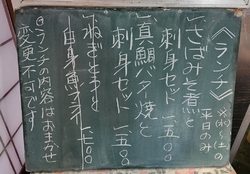 《ランチ》 ※(水)〜(土)の
平日のみ
○さばみそ煮と
刺身セット 一、五〇〇
○真鯛バタ焼と
刺身セット 一、五〇〇
○ねぎとろと
白身魚フライ
◎ランチの内容はおまかせ
変更不可です